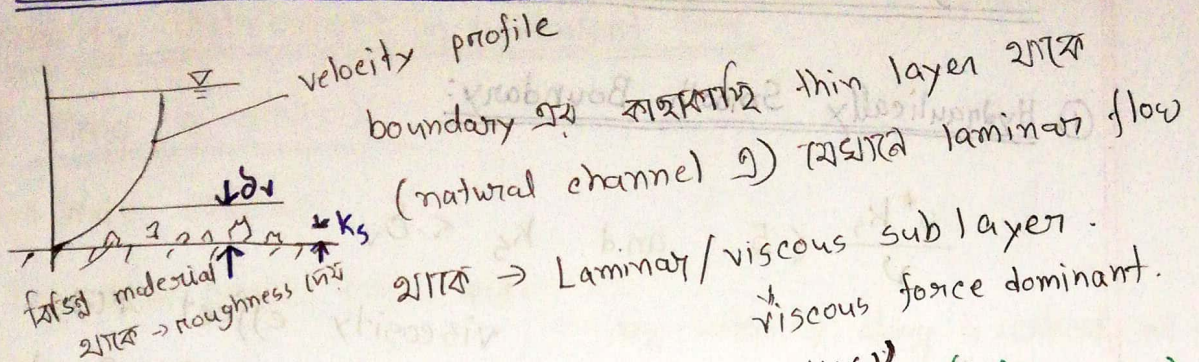 velocity profile
boundary এর কাছাকাছি thin layer থাকে
(natural channel এ) যেখানে laminar flow
থাকে → Laminar/viscous sublayer.
viscous force dominant.
δv
Ks
বিভিন্ন material
থাকে → roughness দেয়